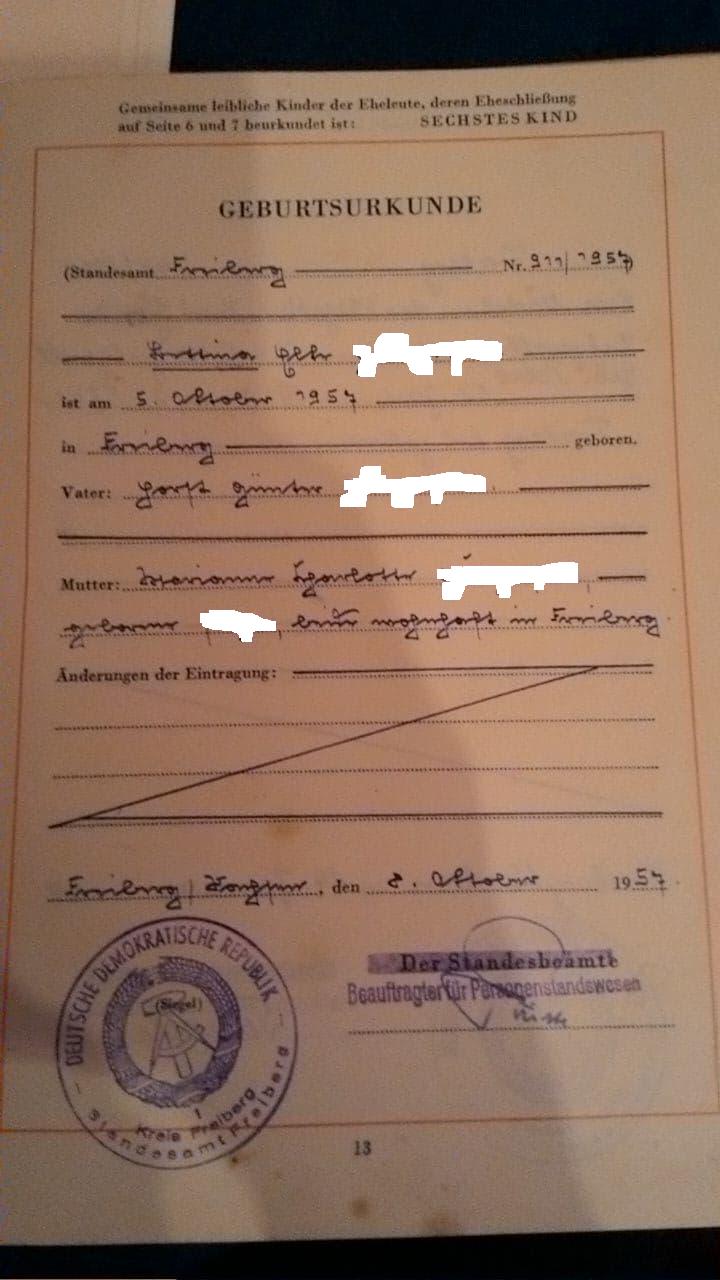 Gemeinsame leibliche Kinder der Eheleute, deren Eheschließung
auf Seite 6 und 7 beurkundet ist: SECHSTES KIND
GEBURTSURKUNDE
(Standesamt Freiberg Nr. 911/1957)
Bettina
ist am 5. Oktober 1957
in Freiberg geboren.
Vater: Horst Günter
Mutter: Marianne Charlotte
geborene , beide wohnhaft in Freiberg.
Änderungen der Eintragung:
Freiberg/Sachsen, den 8. Oktober 1957.
DEUTSCHE DEMOKRATISCHE REPUBLIK
(Siegel)
1
Kreis Freiberg
Standesamt Freiberg
Der Standesbeamte
Beauftragter für Personenstandswesen
13